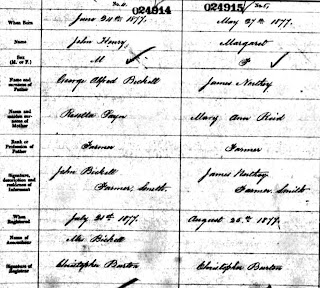 No. 4.
No. 5.
024914
024915
When Born
June 24th 1877.
May 27th 1877.
Name
John Henry,
Margaret
Sex
(M. or F.)
M
F
Name and
surname of
Father
George Alfred Bickell
James Northey
Name and
maiden sur-
name of
Mother
Rosetta Payn
Mary Ann Reid
Rank or
Profession of
Father
Farmer
Farmer
Signature,
description and
residence of
Informant
John Bickell
Farmer,
James Northey
Farmer
When
Registered
July 21st 1877.
August 25th 1877.
Name of
Accoucheur
Mrs Bickell
Signature of
Registrar
Christopher Burton
Christopher Burton